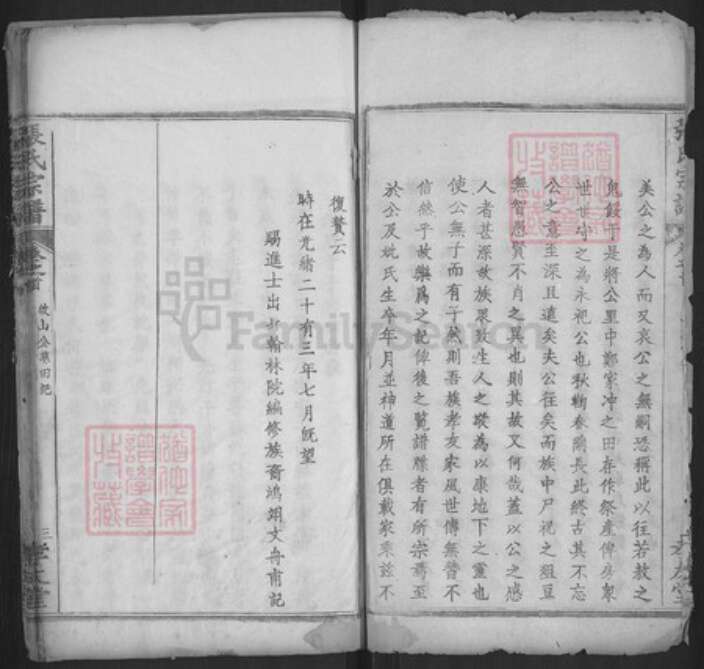 美公之為人而又哀公之無嗣恐稱此以往若敖之
鬼餒于是將公里中鄭家冲之田存作祭產俾房衆
世世守之為永祀公也秋鞠春蘭長此終古其不忘
公之意至深且遠矣夫公往矣而族中尸祝之俎豆
無智愚賢不肖之異也則其故又何哉蓋以公之感
人者甚深故族衆致生人之敬為以康地下之靈也
使公無子而有子然則吾族孝友家風世傳無替不
信然乎故樂為之記俾後之覽譜牒者有所宗焉至
於公及姚氏生卒年月並神道所在俱載家乘茲不
復贅云
時在光緒二十有三年七月既望
賜進士出身翰林院編修族裔鴻翊文舟甫記
張氏宗譜
卷之首
啟山公墓田記
三
孝友堂
FamilySearch